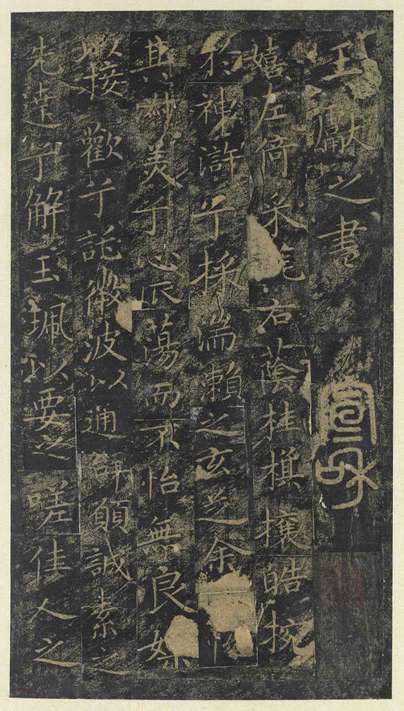 王獻之書
宣和
嬉左倚采旄右蔭桂旗攘皓捥
於神滸兮採湍瀨之玄芝余悅
其淑美兮心振蕩而不怡無良媒
以接歡兮託微波以通辭願誠素之
先達兮解玉珮以要之嗟佳人之